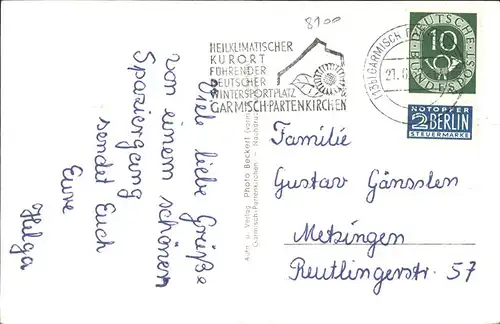 8100
HEILKLIMATISCHER
KURORT
FÜHRENDER
DEUTSCHER
WINTERSPORTPLATZ
GARMISCH-PARTENKIRCHEN
GARMISCH
21.
DEUTSCHE
BUNDESPOST
10
NOTOPFER
2 BERLIN
STEUERMARKE
Viele liebe Grüße
von einem schönen
Spaziergang
sendet Euch
Eure
Helga
Aufn. u. Verlag Photo Beckert
Garmisch-Partenkirchen - Nachdruck
Familie
Gustav Gänsslen
Metzingen
Reutlingerstr. 57